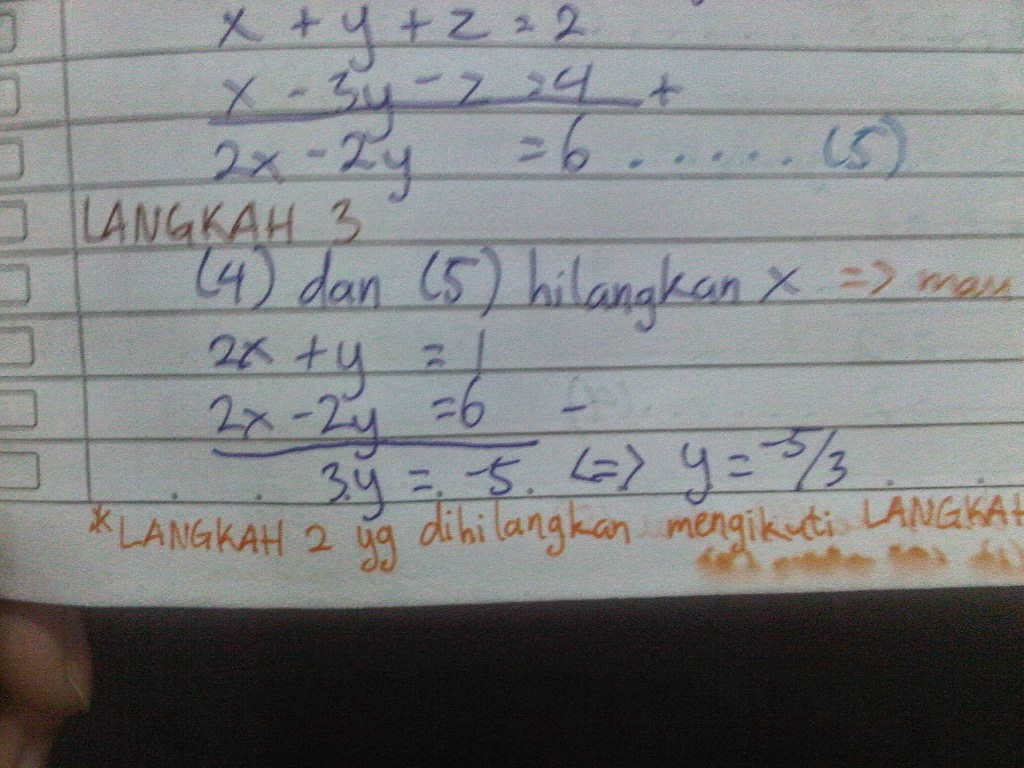 x + y + z = 2
x - 3y - z = 4 +
2x - 2y = 6 ...... (5)
LANGKAH 3
(4) dan (5) hilangkan x =>
2x + y = 1
2x - 2y = 6 -
3y = -5 <=> y = -5/3
*LANGKAH 2 yg dihilangkan mengikuti LANGKAH